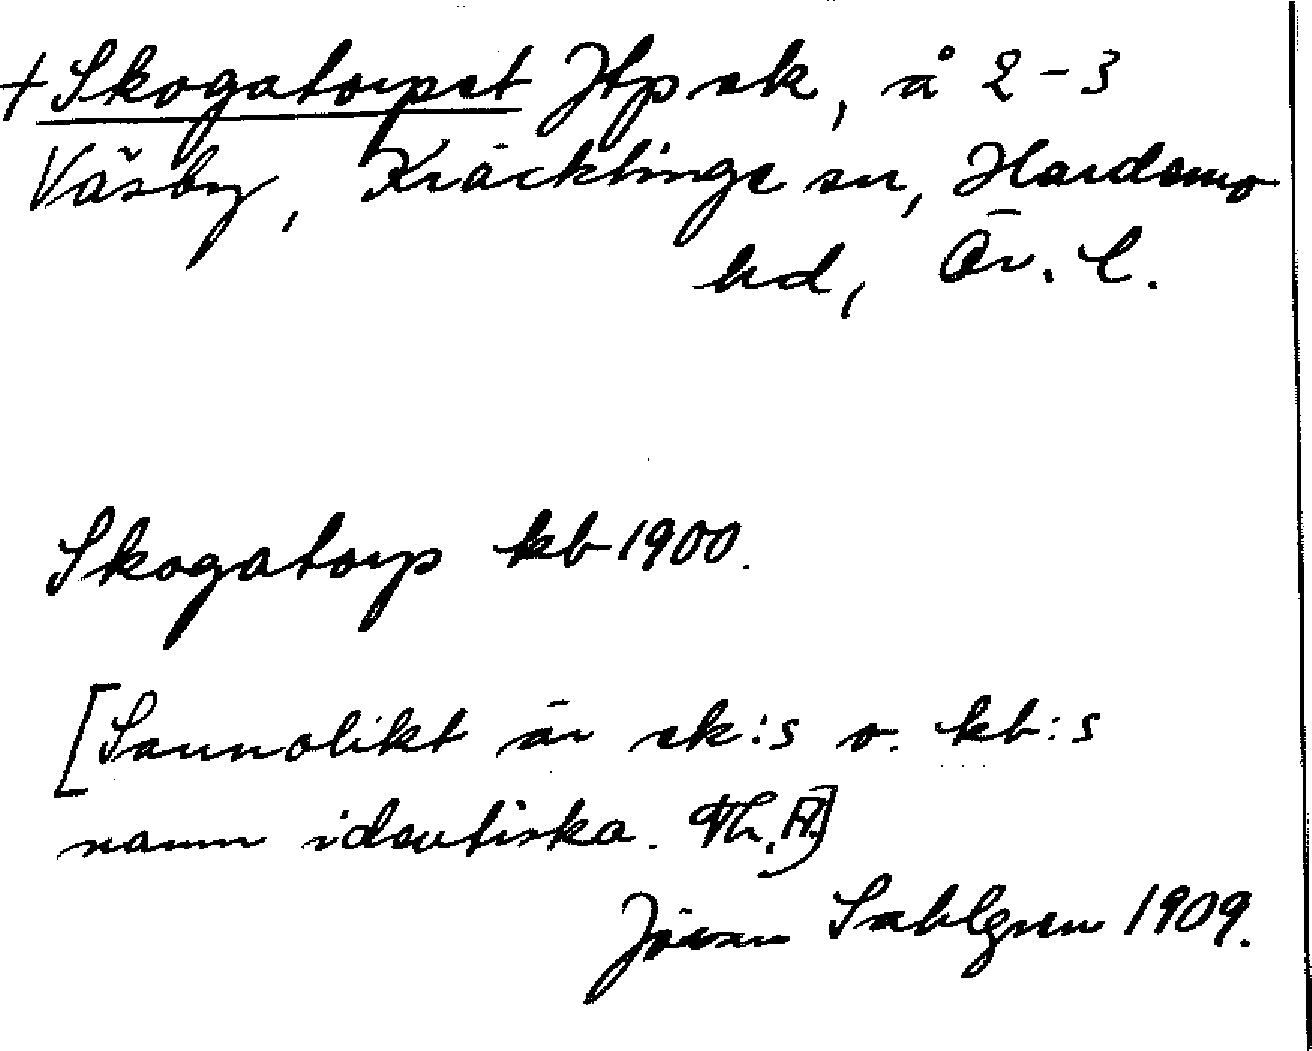 + Skogatorpet Jtp ek, å 2-3
Väsby, Kräcklinge sn, Hardemo
hd, Ör. l.
Skogatorp kb 1900.
[Sannolikt är ek:s o. kb:s
namn identiska. Th.
Jöran Sahlgren 1909.